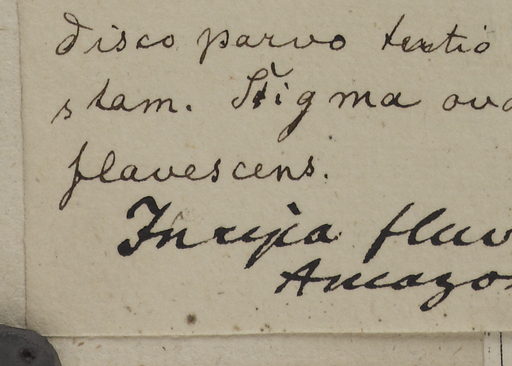 disco parvo tertio
stam. Stigma ova
flavescens.
In ripa fluv
Amazon